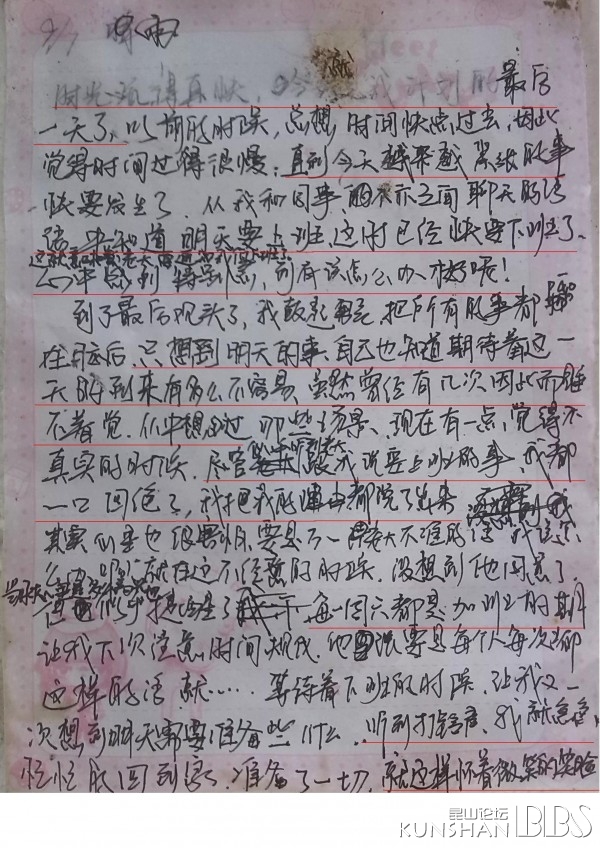 9/7 阵雨
时光流得真快，今天是我计划的最后
一天了、以前的时候，总想，时间快点过去，因此
觉得时间过得很慢；直到今天越来越紧张的事
快要发生了．从我和同事，之间聊天的话
语中知道明天要上班，这时已经快要下班了、
心中感到特别急，到底该怎么办才好呢！
到了最后观头了，我鼓起，把所有的事都
在脑后．只想到明天的事、自己也知道期待着这一
天的到来有多么不容易、虽然曾经有几次因此而睡
不着觉．心中想过那些场景、现在有一点，觉得不
真实的时候．尽管跟我说要上班的事．我都
一口回绝了，我把我的理由都说了出来
其实心里也很害怕、要是万一不准的话我该怎
么办呢．就在这不经意的时候．没想到他同意了．
但也提醒了每一周六都是加班的
让我下次注意时间规民．他说要是每个人每次都
这样的话就…… 等待着下班的时候．让我又一
次想到明天需要准备些什么．听到打铃声．我就急急
忙忙的回到家．准备了一切．就这样怀着微笑的笑脸
昆山论坛
KUNSHAN BBS